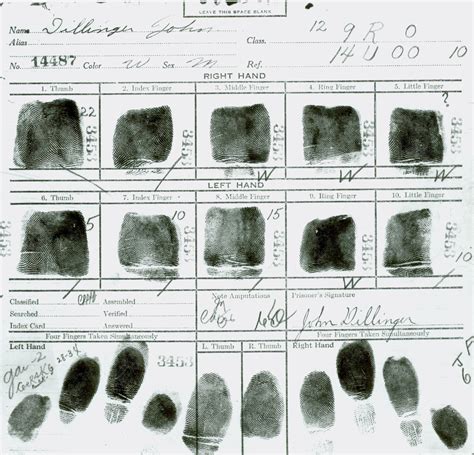 LEAVE THIS SPACE BLANK
Name Dillinger John
Alias
No. 14487 Color W Sex M
Class. 12 9 R O
Ref. 14 U OO 10
RIGHT HAND
1. Thumb 2. Index Finger 3. Middle Finger 4. Ring Finger 5. Little Finger
22 ?
3453 3453
/ / W W
LEFT HAND
6. Thumb 7. Index Finger 8. Middle Finger 9. Ring Finger 10. Little Finger
5 10 15
3453 3453
/ / / W 10
Classified Assembled Note Amputations Prisoner's Signature
Searched Verified
Index Card Answered John Dillinger
Four Fingers Taken Simultaneously Four Fingers Taken Simultaneously
Left Hand 3453 L. Thumb R. Thumb Right Hand